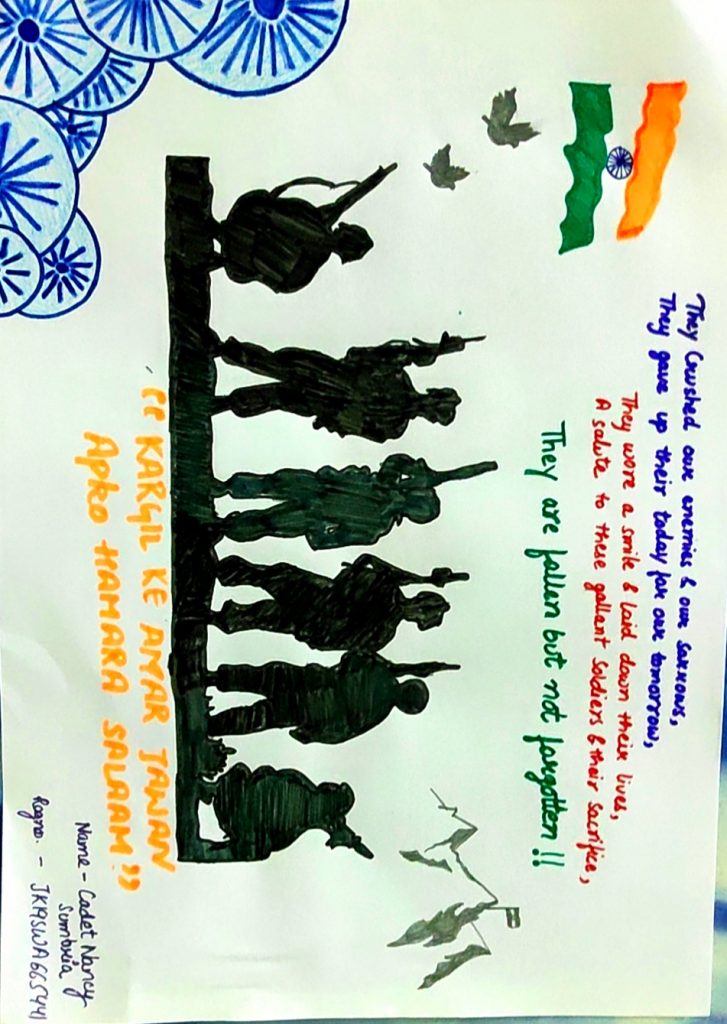 They Crushed our enemies & our sarrows,
They gave up their today for our tomorrow,
They wore a smile & laid down their lives,
A salute to these gallant soldiers & their sacrifice,
They are fallen but not forgotten !!
“ KARGIL KE AMAR JAWAN
Apko HAMARA SALAAM! ”
Name - Cadet Nancy
Sumbria
Regno. - JK19SWA665441